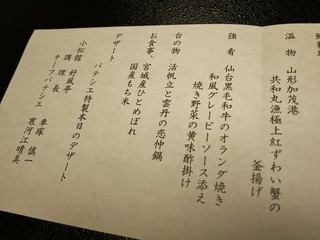 温物 山形加茂港
共和丸漁極上紅ずわい蟹の
釜揚げ
強肴 仙台黒毛和牛のオランダ焼き
和風グレービーソース添え
焼き野菜の黄味酢掛け
台の物 活帆立と雲丹の恋仲鍋
お食事 宮城産ひとめぼれ
国産もち米
デザート
パティシエ特製本日のデザート
小松館 好風亭
調理長 車塚 慎一
チーフパティシエ 寒河江晴美